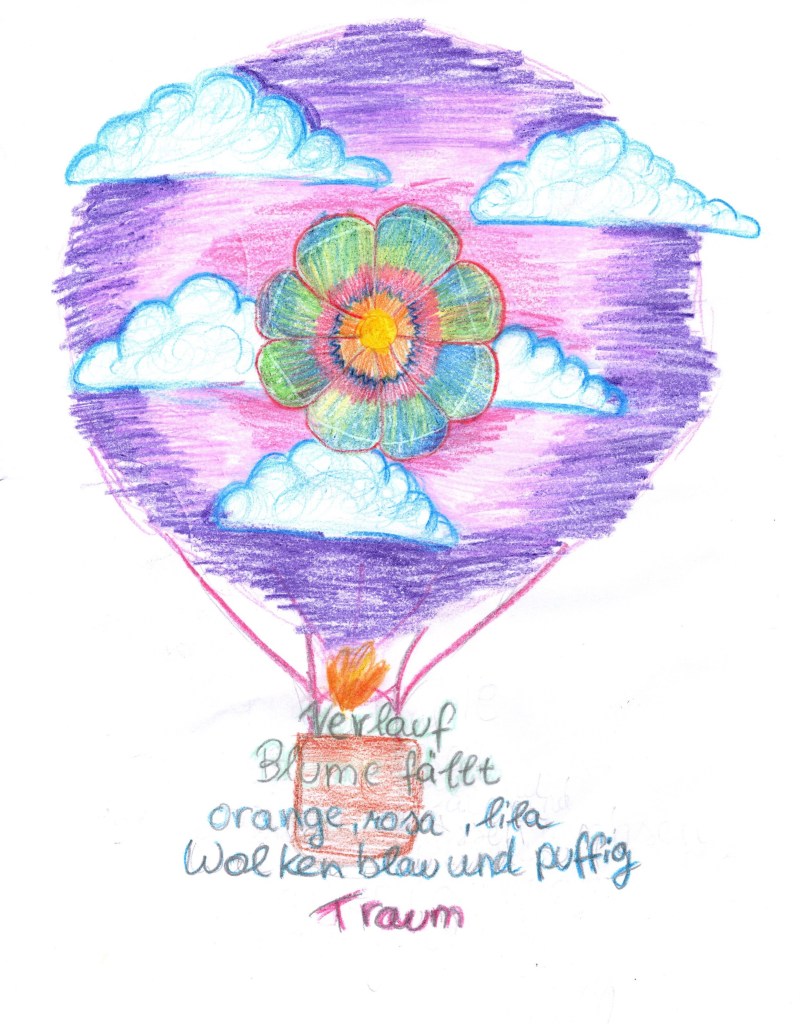 Verlauf
Blume fällt
orange, rosa, lila
Wolken blau und puffig
Traum